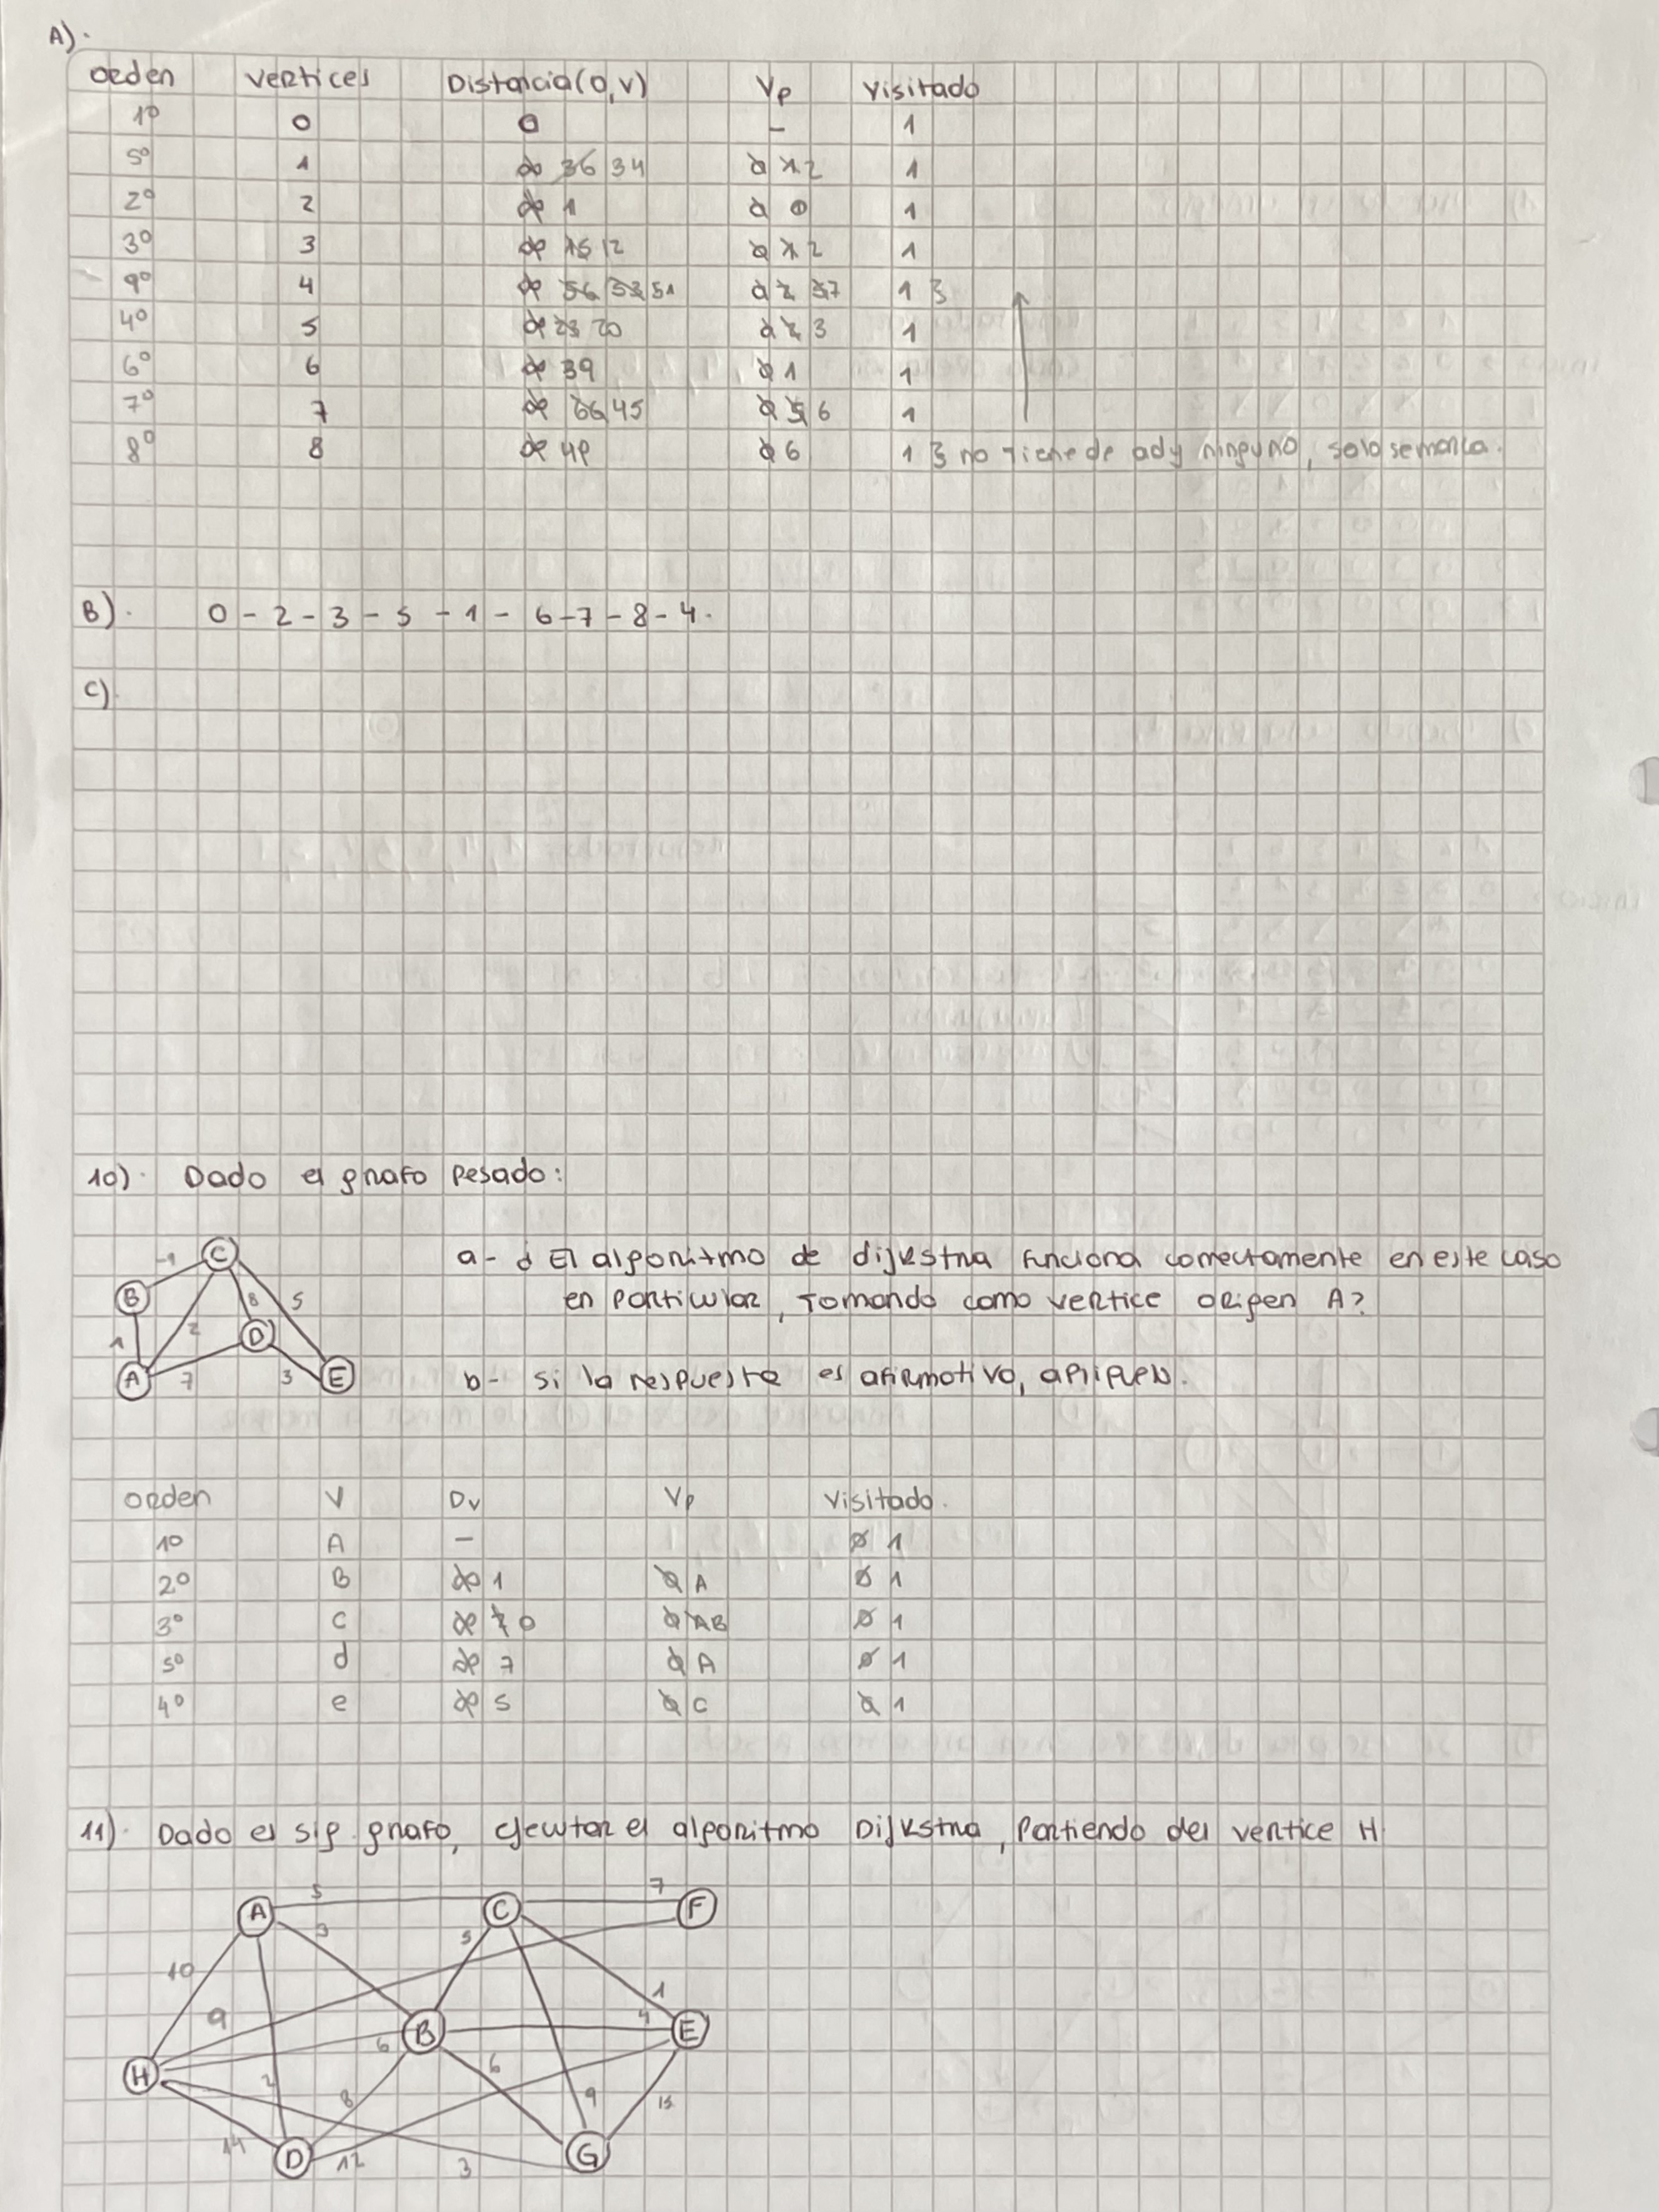 A).
orden vertices Distancia(0,v) Vp Visitado
1º 0 0 - 1
5º 1 ∞ 36 34 0 1 2 1
2º 2 ∞ 1 0 0 1
3º 3 ∞ 15 12 0 1 2 1
9º 4 ∞ 56 53 51 0 2 3 7 1 }
4º 5 ∞ 23 20 0 2 3 1
6º 6 ∞ 39 0 1 1
7º 7 ∞ 66 45 0 5 6 1
8º 8 ∞ 49 0 6 1 } no tiene de ady ninguno, solo se marca.
B). 0 - 2 - 3 - 5 - 1 - 6 - 7 - 8 - 4.
C)
10). Dado el grafo pesado:
a- ¿ El algoritmo de dijkstra funciona correctamente en este caso
en particular, tomando como vertice origen A?
b- si la respuesta es afirmativo,
-1 C
B 8 5
1 2 D
A 7 3 E
orden V Dv Vp Visitado.
1º A - 0 1
2º B ∞ 1 0 A 0 1
3º C ∞ 2 0 0 A B 0 1
5º d ∞ 7 0 A 0 1
4º e ∞ 5 0 C 0 1
11). Dado el sig. grafo, ejecutar el algoritmo Dijkstra, Partiendo del vertice H
A 5 C 7 F
3 5
10 1
9 B 4 E
H 6 6
2 8 9 15
14 D 12 3 G